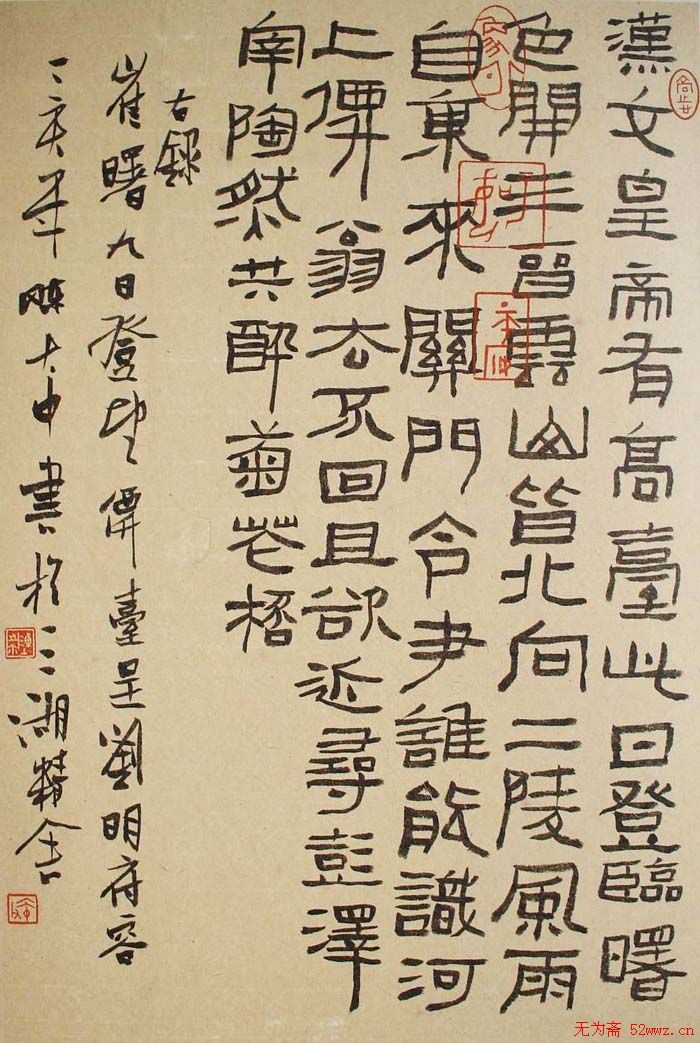 漢文皇帝有高臺此日登臨曙
色開三晉雲山皆北向二陵風雨
自東來關門令尹誰能識河
上僊翁去不回且欲近尋彭澤
宰陶然共醉菊花桮
右錄
崔曙九日登望僊臺呈劉明府容
丁亥年陳大中書於三湖精舍
无为斋 52wwz.cn